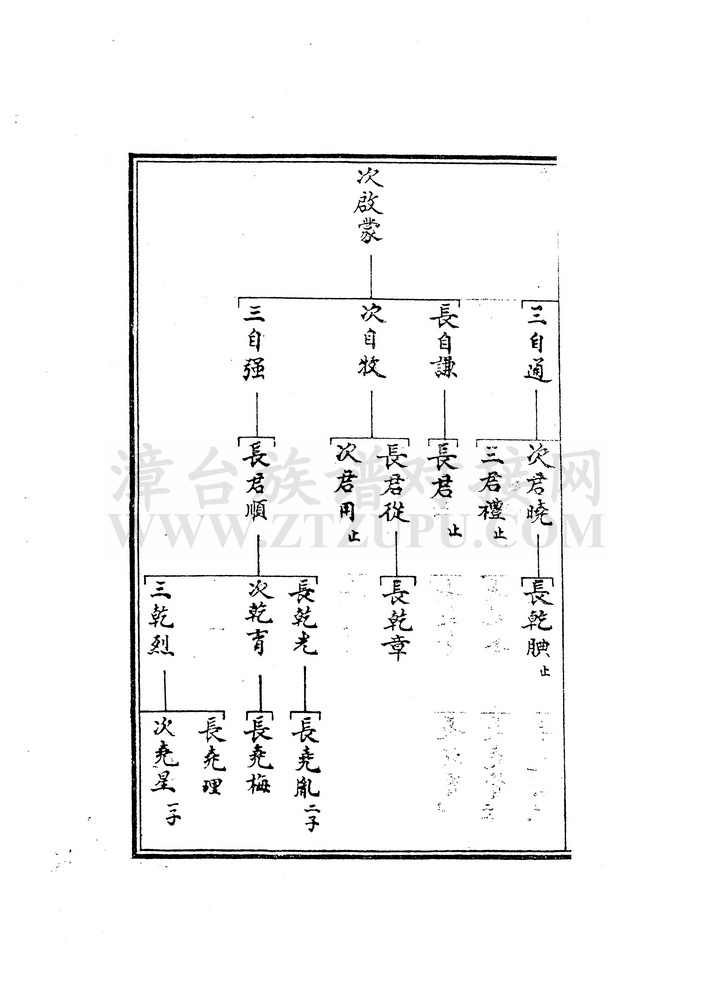 次啟蒙
三自通
長自謙
次自牧
三自强
次君曉
三君禮止
長君
止
長君從
次君用止
長君順
長乾腆止
長乾章
長乾光
次乾育
三乾烈
長堯胤二子
長堯梅
長堯理
次堯星一子
漳台族谱对接网
WWW.ZTZUPU.COM